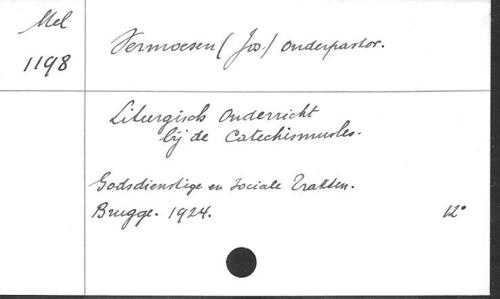 Mel
1198
Vermoesen (Jos.) Onderpastor.
Liturgisch Onderricht
bij de Catechismusles.
Godsdienstige en Sociale Trakten.
Brugge. 1924. 12°